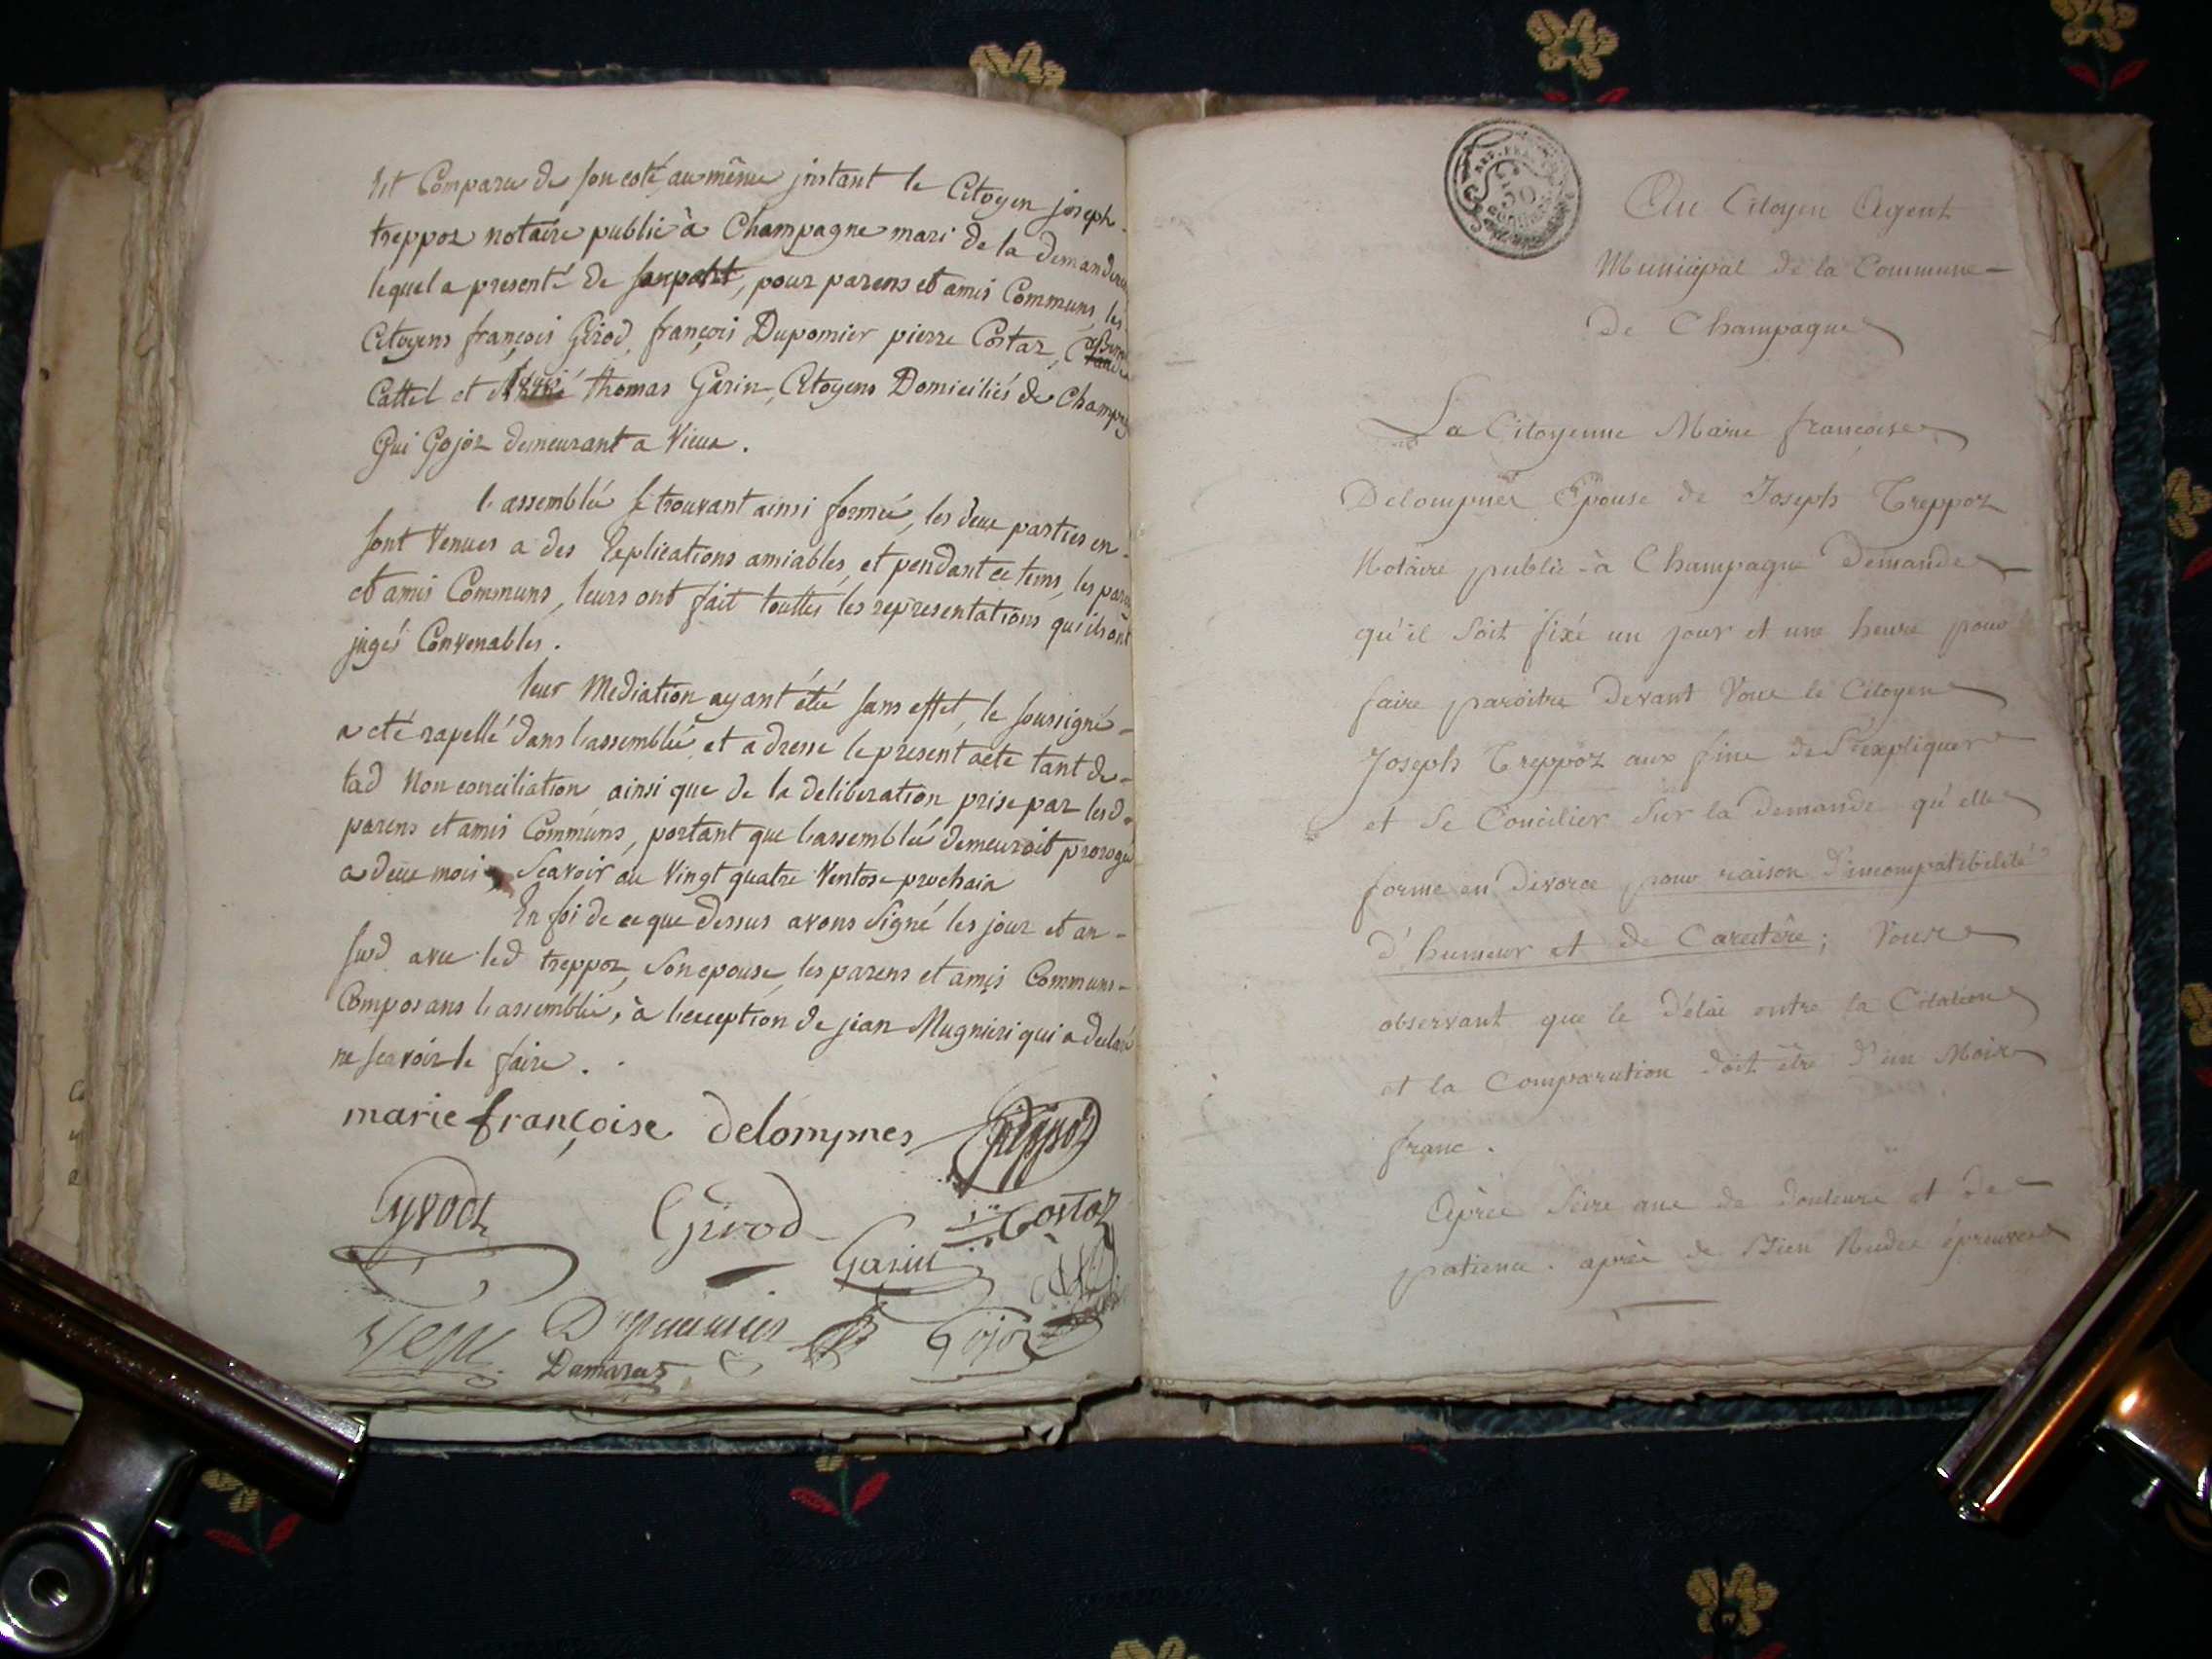 Est Comparu de son coté, au même jnstant le Citoyen joseph
treppoz notaire public à Champagne mari de la demanderes
lequel a presenté de sa part, pour parens et amis Communs, les
Citoyens françois Girod, françois Dupomier pierre Costaz,
Cattel et thomas Garin, Citoyens Domiciliés de Champag
Gui Gojoz demeurant a Vieux.
l'assemblée se trouvant ainsi formée, les deux parties en
sont Venues a des Explications amiables, et pendant ce tems, les parens
et amis Communs, leurs ont fait touttes les representations qu'ils ont
jugés Convenables.
leur Mediation ayant été sans effet, le soussigné
a eté rapellé dans l'assemblée, et a dressé le present acte tant de
lad Non conciliation ainsi que de la deliberation prise par lesd.
parens et amis Communs, portant que l'assemblée demeuroit prorogée
a deux mois, Scavoir au Vingt quatre Ventose prochain
En foi de ce que dessus avons Signé les jour et an
susd avec led treppoz, Son epouse, les parens et amis Communs
Composans l'assemblée, à l'exception de jean Mugnieri qui a declaré
ne scavoir le faire.
marie françoise delompnes Treppoz
Gyrod Girod Costaz
Garin
Dupuumier Gojoz
Damaraz
50
Au Citoyen Agent
Municipal de la Commune
de Champagne
La Citoyenne Marie françoise
Delompnes Epouse de Joseph Treppoz
Notaire public à Champagne Demande
qu'il soit fixé un jour et une heure pour
faire paroitre devant Vous le Citoyen
Joseph Treppoz aux fins de S'expliquer
et se Concilier Sur la demande qu'elle
forme en divorce pour raison d'incompatibilité
d'humeur et de Caractère; Vous
observant que le Délai entre la Citation
et la Comparution doit être d'un Mois
franc.
Après Seize ans de douleurs et de
patience. après de Bien Rudes épreuves